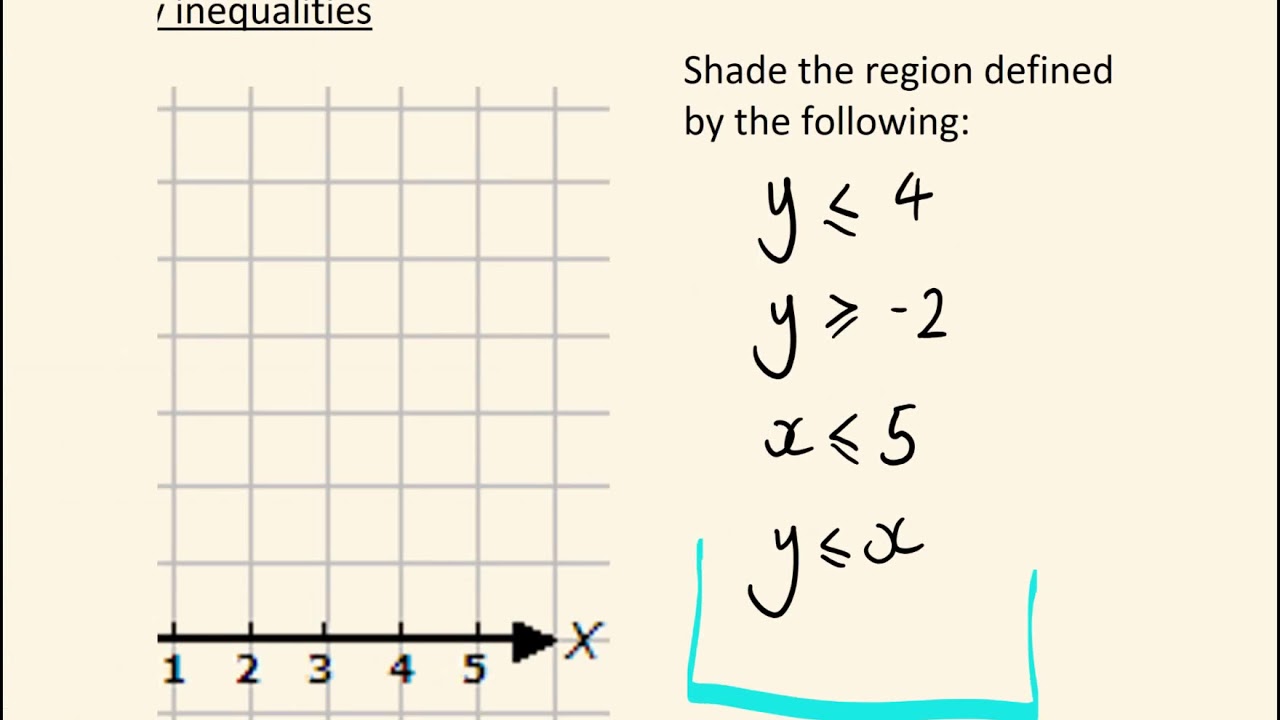 inequalities
Shade the region defined
by the following:
y ≤ 4
y ≥ -2
x ≤ 5
y ≤ x
X
1 2 3 4 5